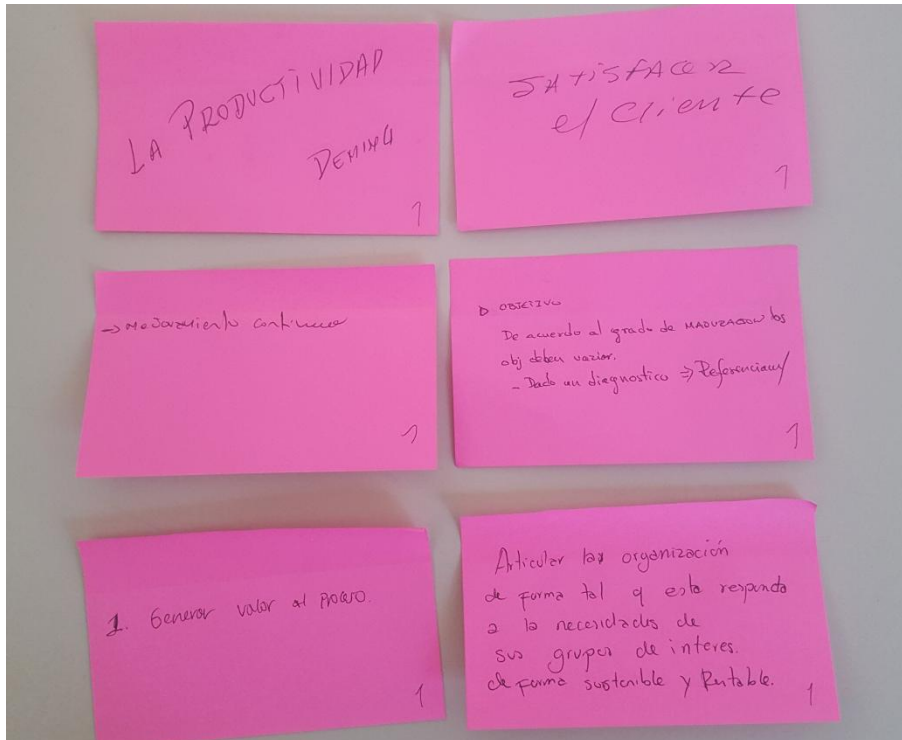 LA PRODUCTIVIDAD
DEMING
1
SATISFACER
el cliente
1
→ Mejoramiento continuo
1
D OBJETIVO
De acuerdo al grado de MADURACION los
obj deben variar.
- Dado un diagnostico ⇒ Referencian
1
1. Generar valor al proceso.
1
Articular las organización
de forma tal q esta responda
a la necesidades de
sus grupos de interes.
de forma sostenible y Rentable.
1